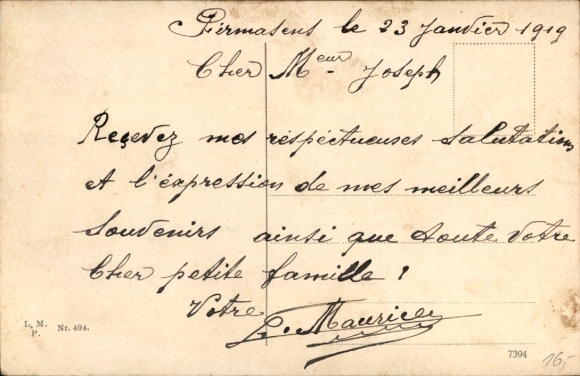 Pirmasens le 23 Janvier 1919
Cher Meur Joseph
Recevez mes réspéctueuses salutations
et l'éxpression de mes meilleurs
souvenirs ainsi que toute votre
Cher petite famille !
Votre
L. Maurice
L. M.
P. Nr. 404.
7394
16,-